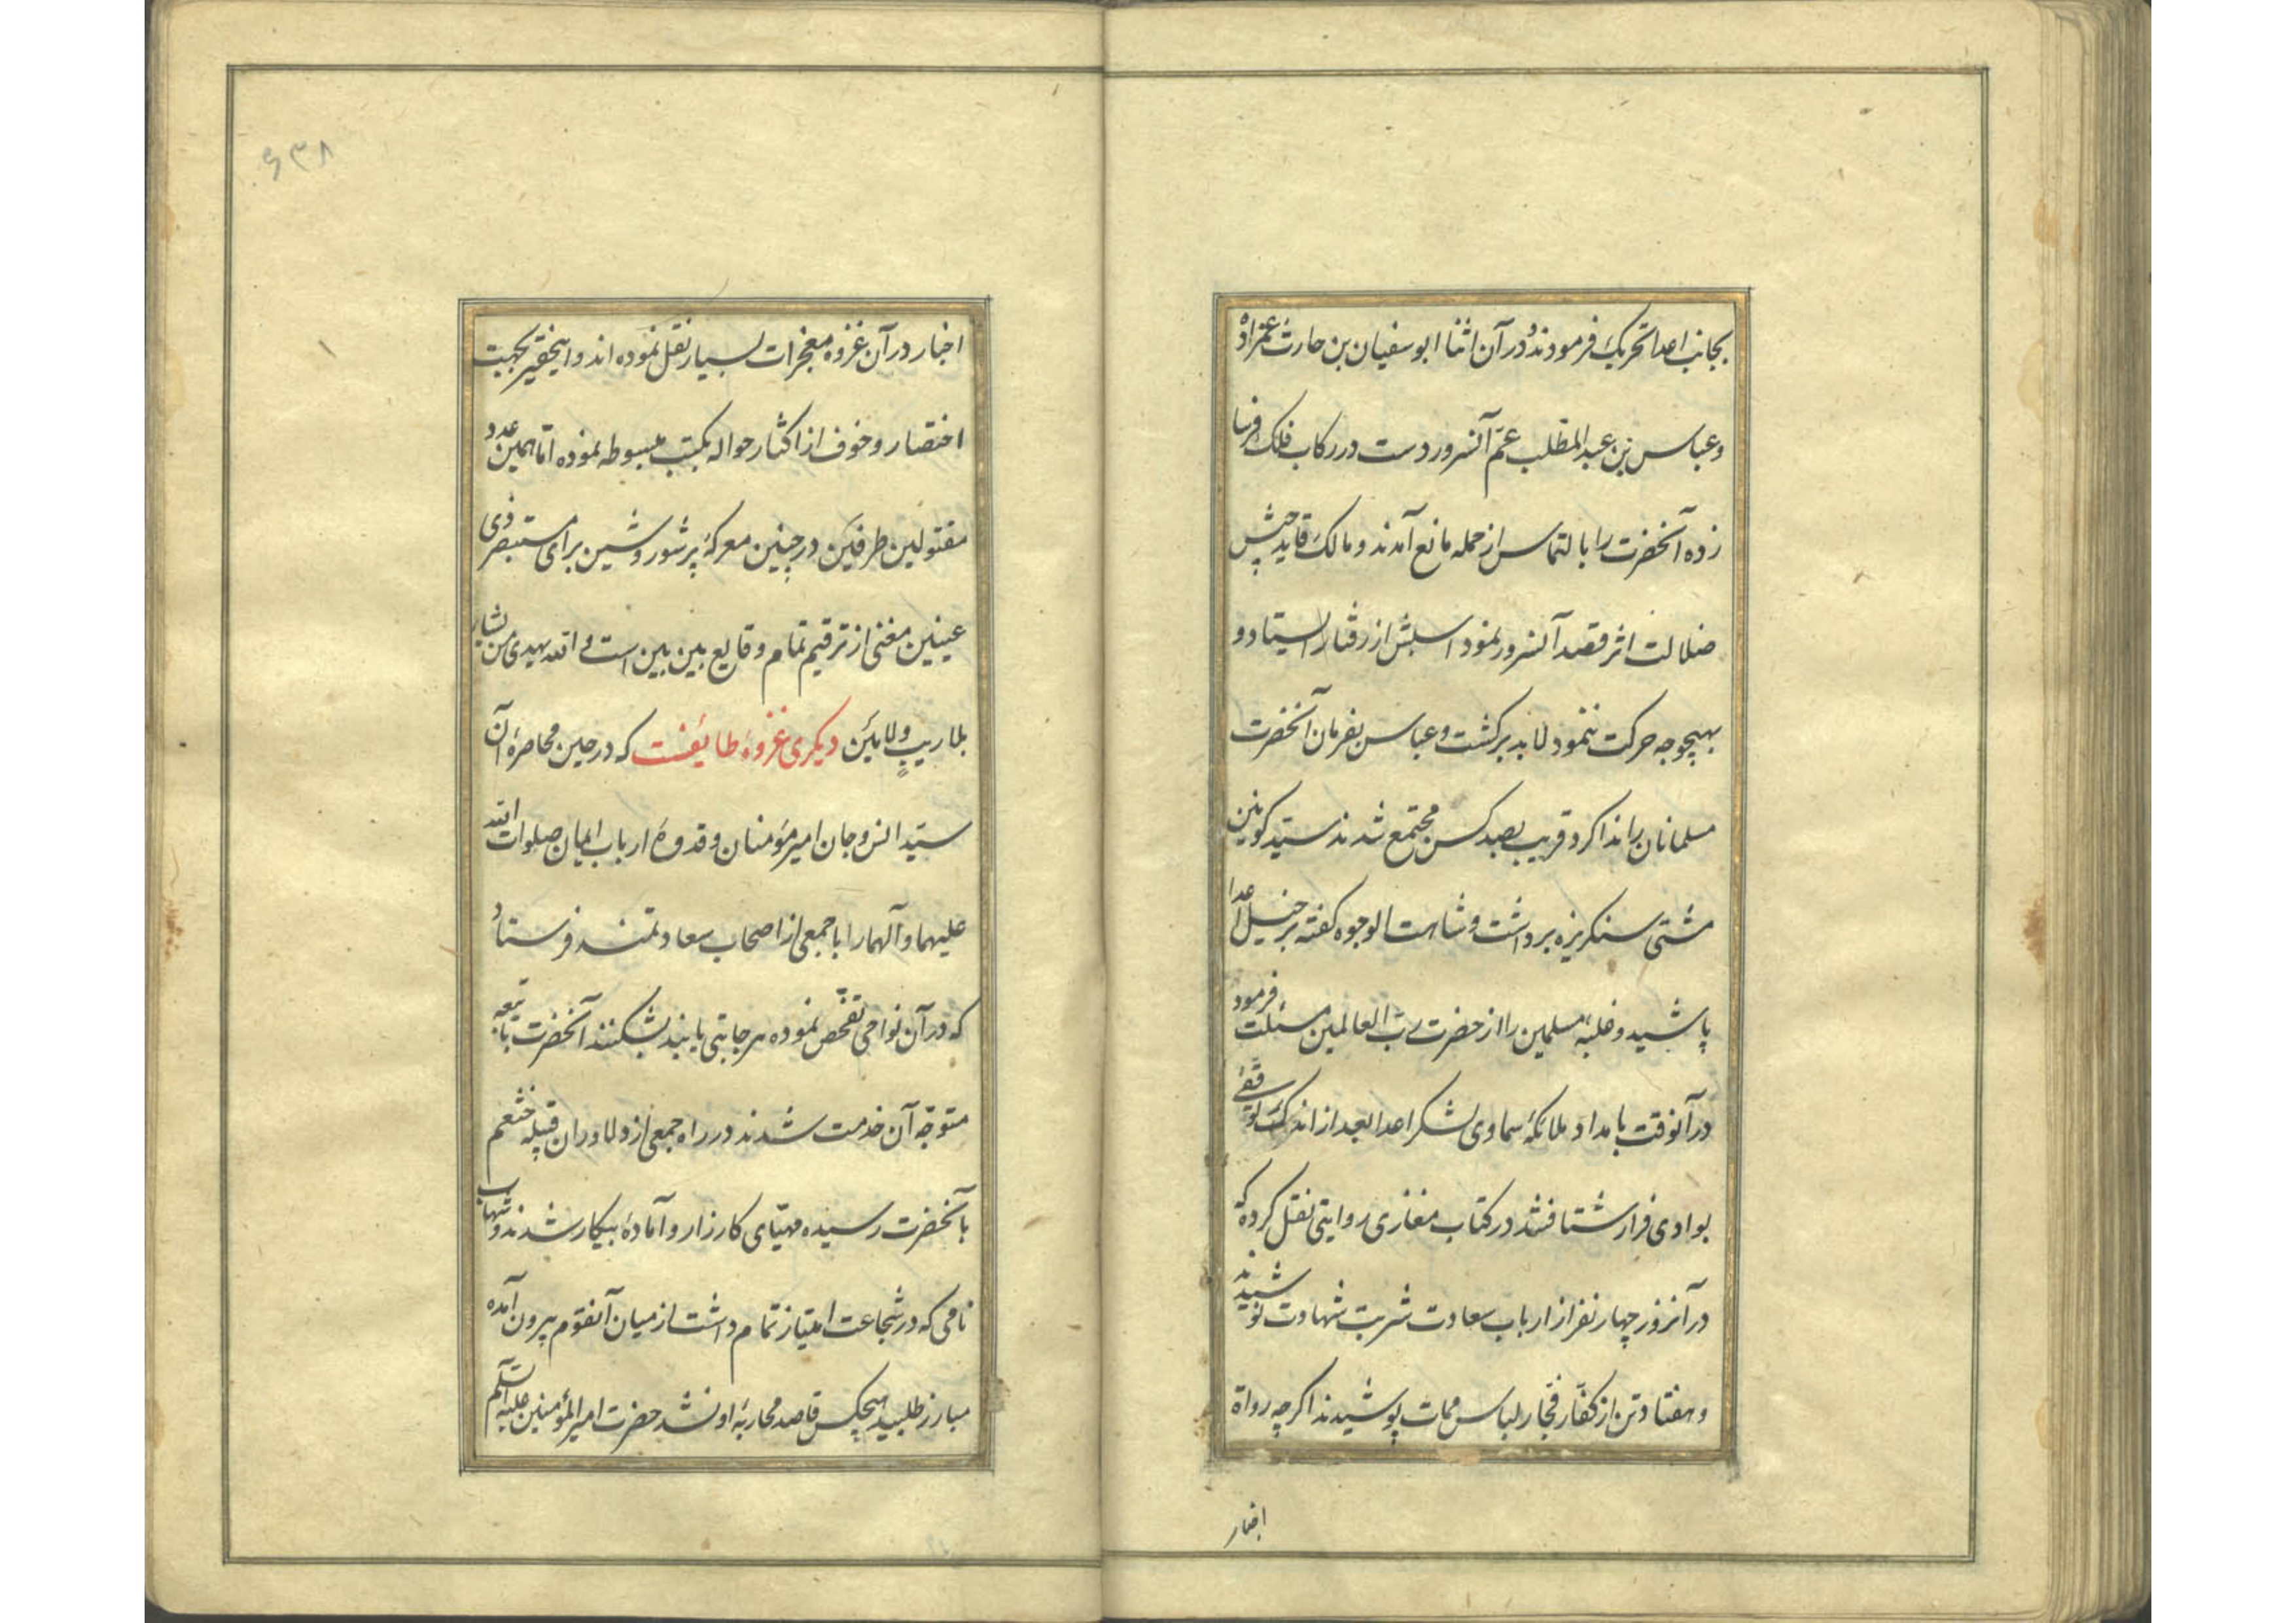 بجانب اعدا تحریک فرمودند و در آن اثنا ابوسفیان بن حارث عمزاده
و عباس بن عبد المطلب عم آنسرور دست در رکاب فلک فرسا
زده آنحضرت را بالتماس از حمله مانع آمدند و مالک قاید جیش
ضلالت اثر قصد آنسرور نمود اسبش از رفتار ایستاد و
بهیچوجه حرکت ننمود لابد برکشت و عباس بفرمان آنحضرت
مسلمانان را ندا کرد قریب بصد کس مجتمع شدند سید کونین
مشتی سنکریزه برداشت و شاهت الوجوه کفته بر خیل اعدا
پاشید و غلبه مسلمین را از حضرت رب العالمین مسئلت فرمود
در آنوقت بامداد ملائکهٔ سماوی لشکر اعدا بعد از اندک توقفی
بوادی فرار شتافتند در کتاب مغازی روایتی نقل کرده که
در آنروز چهار نفر از ارباب سعادت شربت شهادت نوشیدند
و هفتاد تن از کفار فجار لباس ممات پوشیدند اکرچه رواة
اخبار
۶۳۸
اخبار در آن غزوه معجزات بسیار نقل نموده اند و اینحقیر بجهت
اختصار و خوف از اکثار حواله بکتب مبسوطه نموده اما همین عدد
مقتولین طرفین در چنین معرکهٔ پر شور و شین برای مستبصر ذی
عینین مغنی از ترقیم تمام وقایع بین بین است و الله یهدی من یشاء
بلا ریب ولا مین دیکری غزوهٔ طایفست که در حین محاصرهٔ آن
سید انس و جان امیر مؤمنان و قدوهٔ ارباب ایمان صلوات الله
علیهما و آلهما را با جمعی از اصحاب سعادتمند فرستاد
که در آن نواحی تفحص نموده هر جا بتی یابند بشکنند آنحضرت با تبعه
متوجه آن خدمت شدند در راه جمعی از دلاوران قبیله خثعم
بآنحضرت رسیده مهیای کارزار و آمادهٔ پیکار شدند و شهاب
نامی که در شجاعت امتیاز تمام داشت از میان آنقوم بیرون آمده
مبارز طلبید هیچکس قاصد محاربهٔ او نشد حضرت امیر المؤمنین علیه السلام